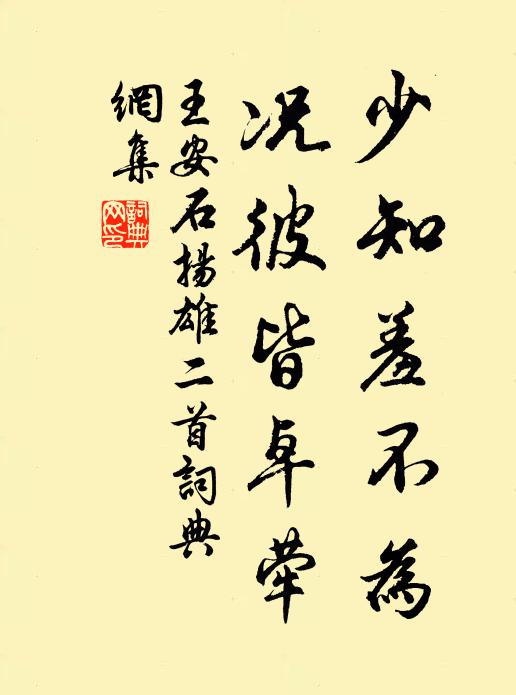 少知羞不為
況彼皆卓犖
王安石揚雄二首詞典
網集
詞典
网印